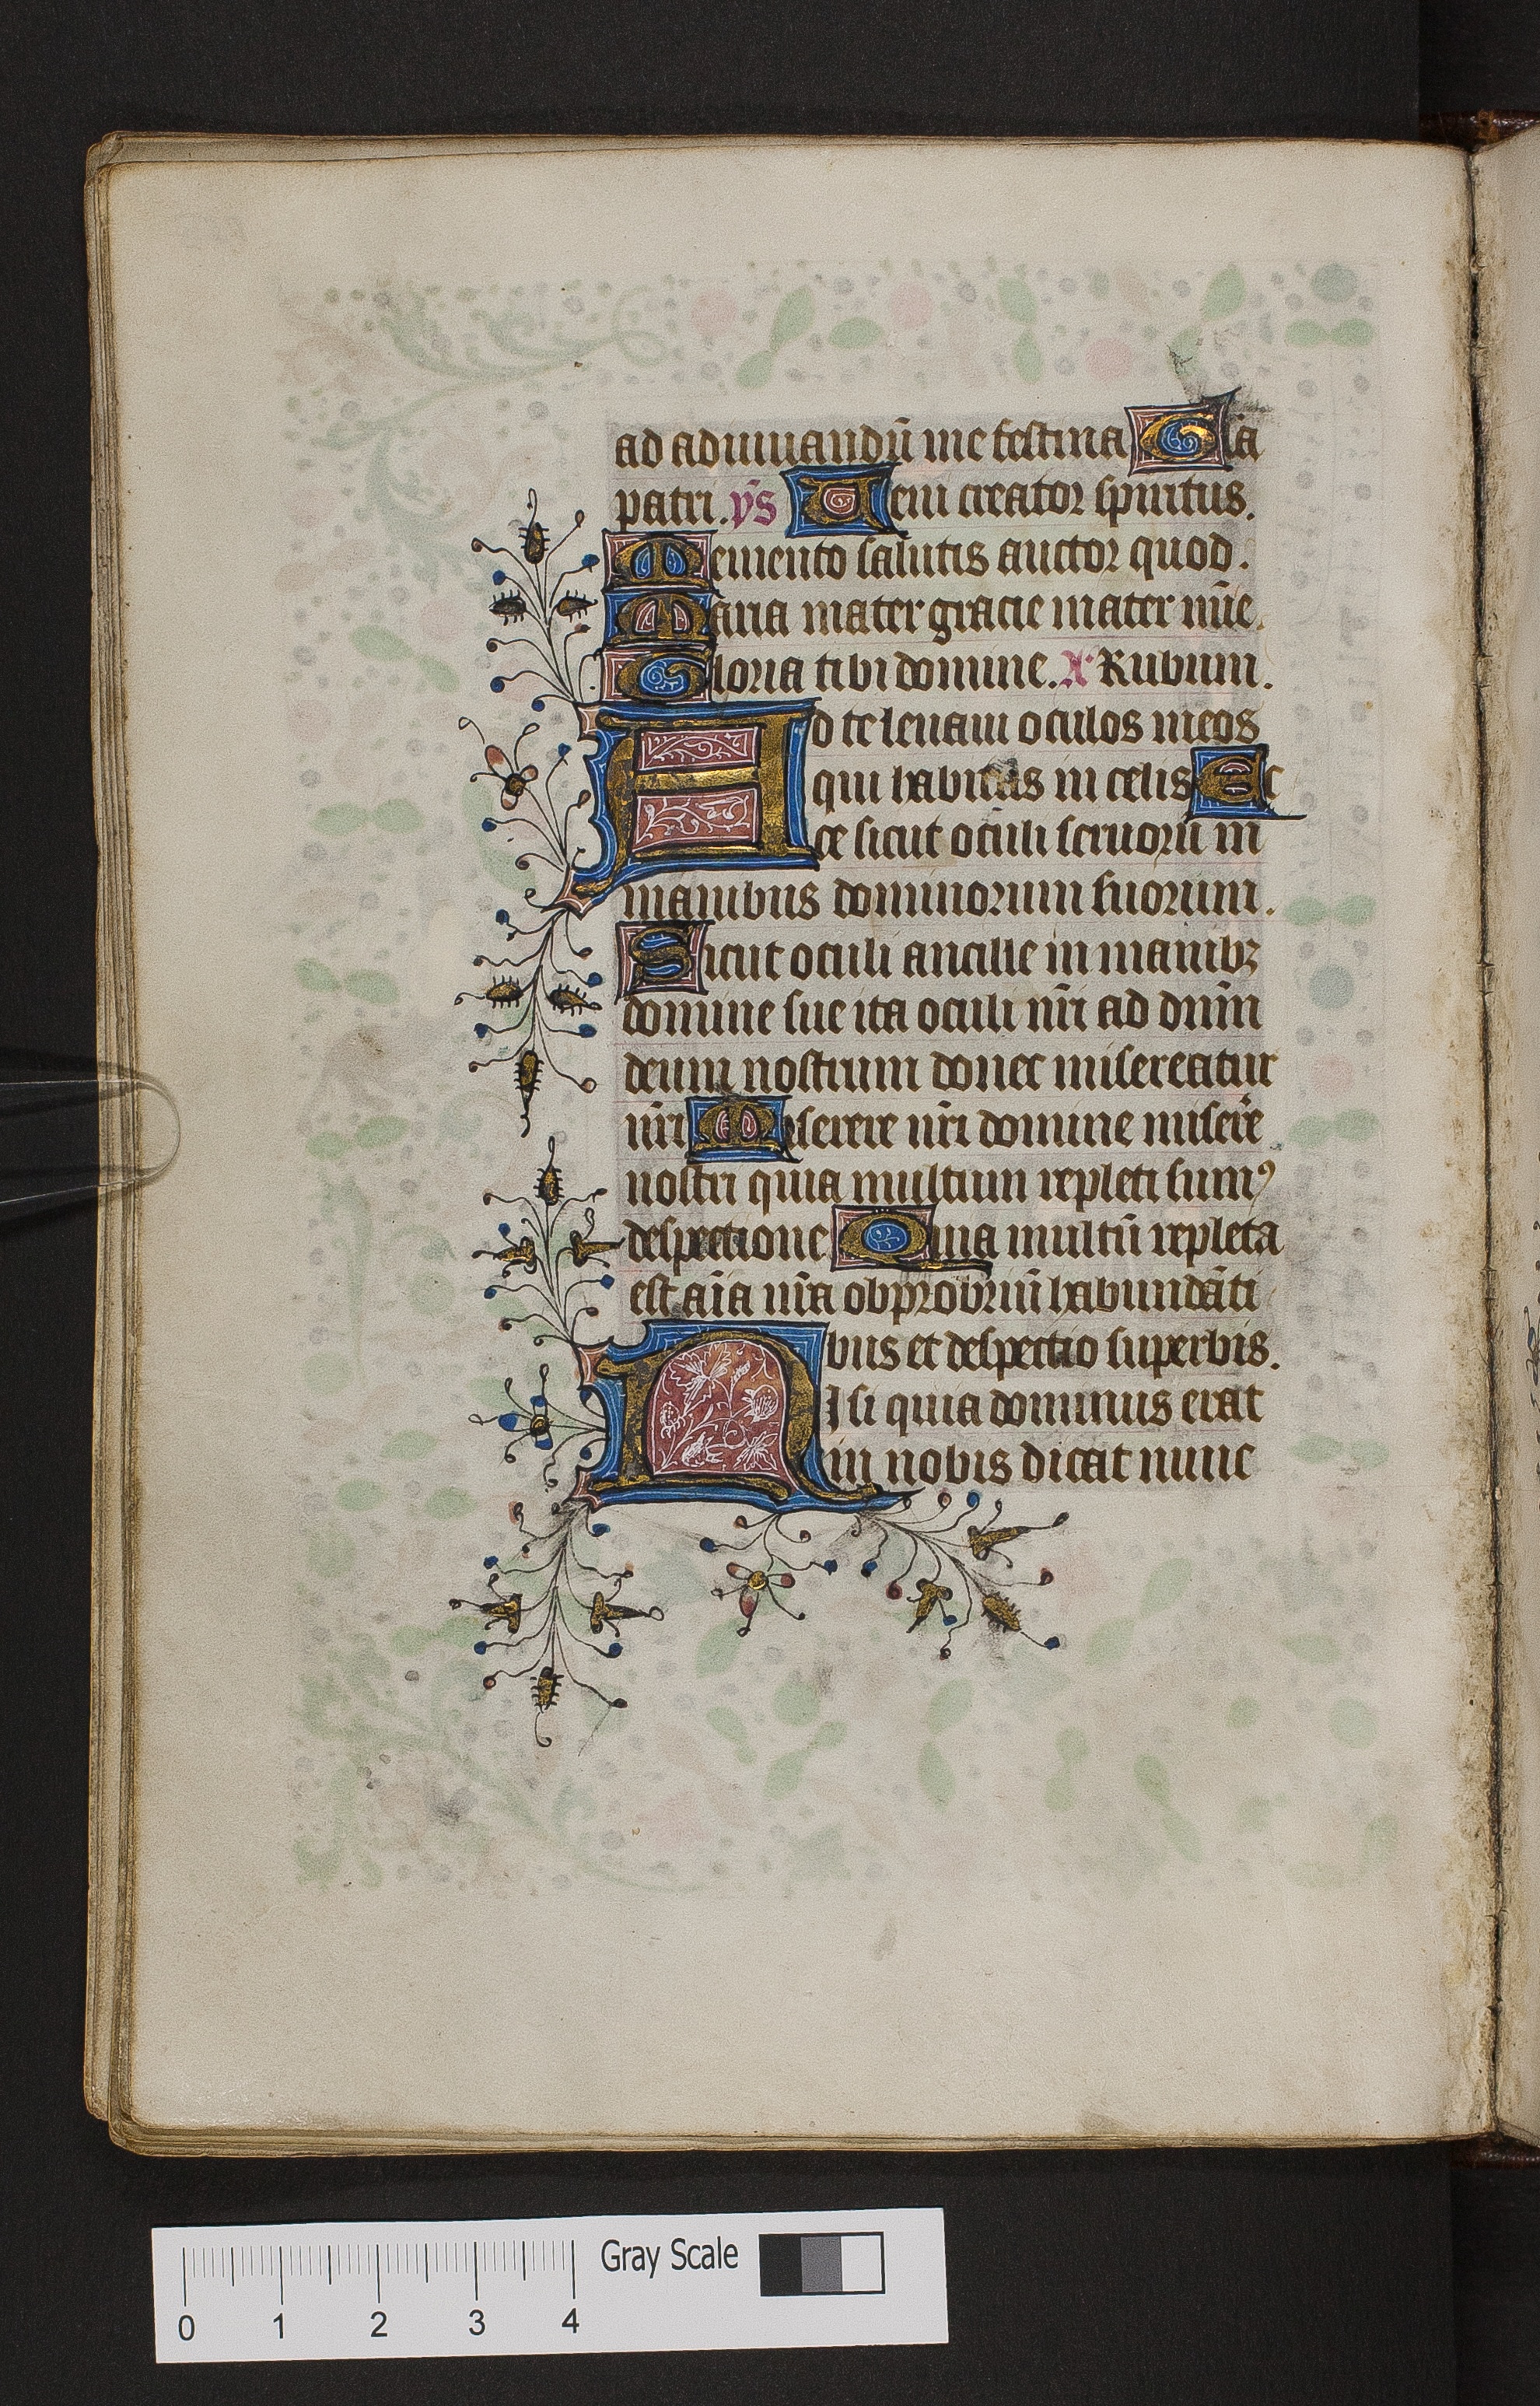 ad adiuuandū me festina Glā
patri. ps̄ Ueni creator spiritus.
Memento salutis auctor quod.
Maria mater gracie mater mīe.
Gloria tibi domine. A Rubum.
Ad te leuaui oculos meos
qui habitas in celis Ec
ce sicut oculi seruorū in
manibus dominorum suorum.
Sicut oculi ancille in manibꝫ
domine sue ita oculi nr̄i ad dn̄m
deum nostrum donec misereatur
nr̄i Miserere nr̄i domine miserē
nostri quia multum repleti sumꝰ
despectione Quia multū repleta
est aīa nr̄a obprobriū habundāti
bus et despectio superbis.
Nisi quia dominus erat
in nobis dicat nunc
0 1 2 3 4 Gray Scale